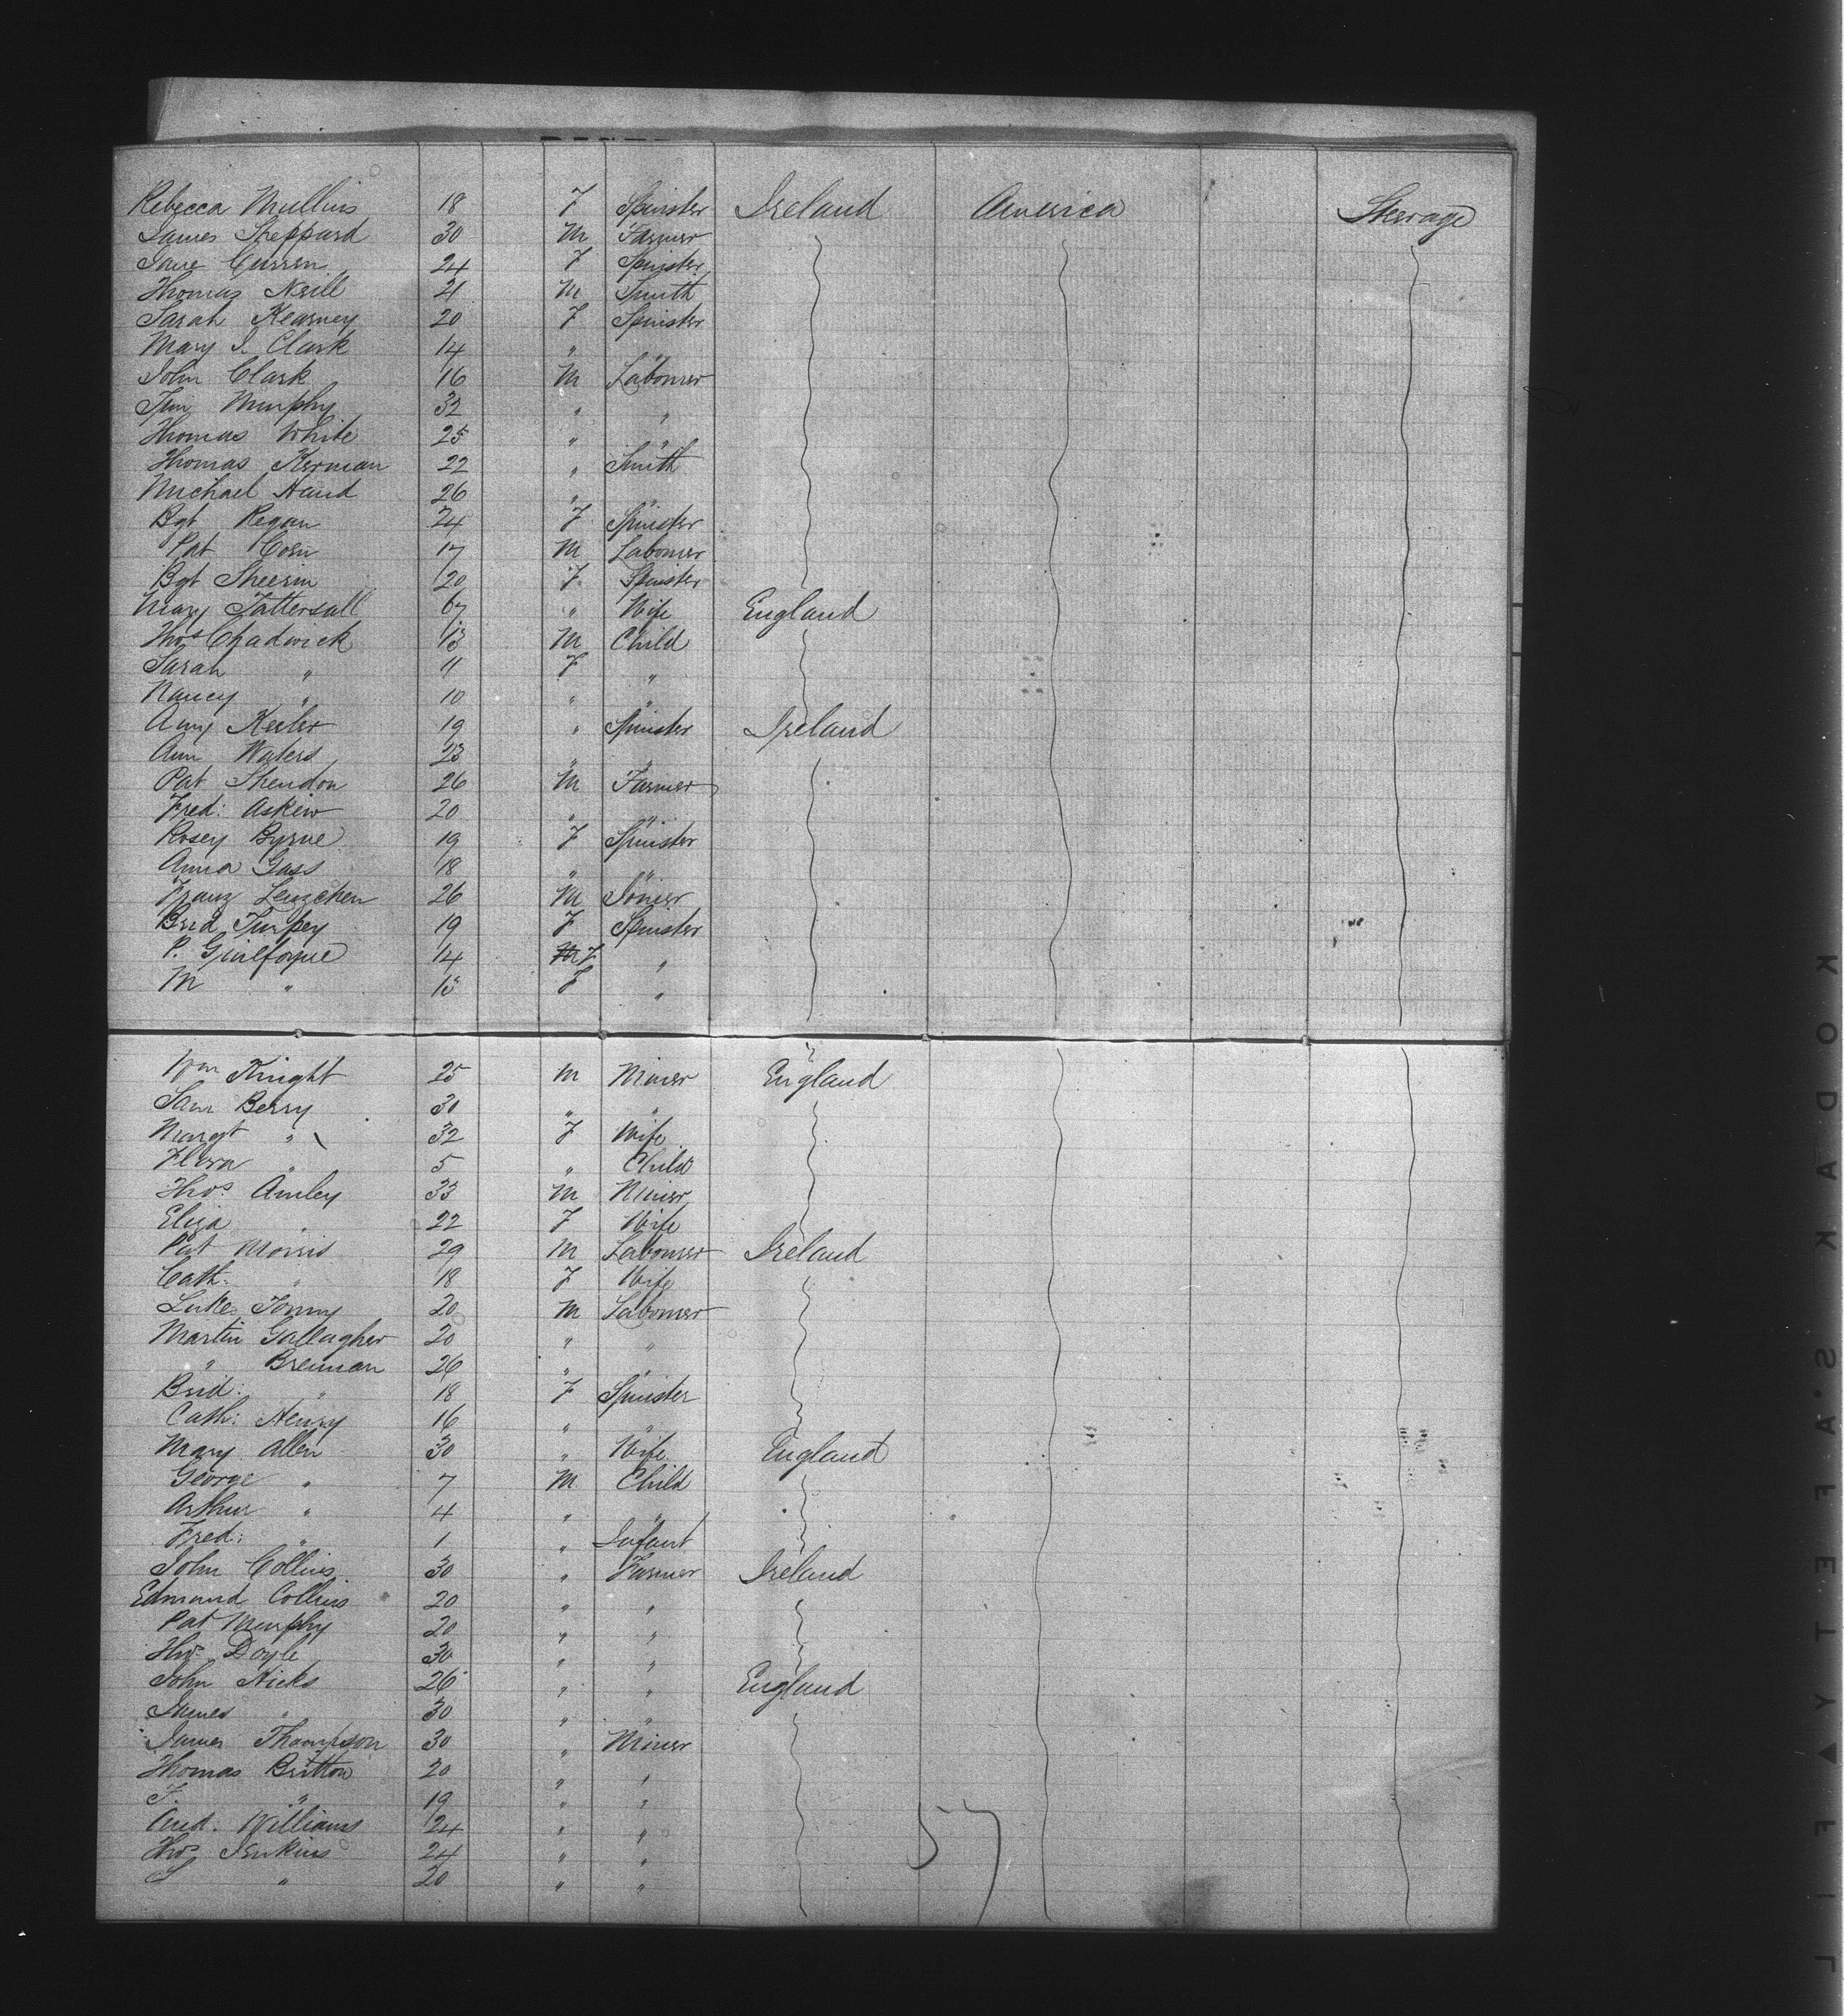 Rebecca Mullins 18 F Spinster Ireland America Steerage
James Sheppard 30 M Farmer
Jane Curren 24 F Spinster
Thomas Neill 21 M Smith
Sarah Kearney 20 F Spinster
Mary J. Clark 14 " "
John Clark 16 M Labourer
Tim Murphy 32 " "
Thomas White 25 " "
Thomas Kernan 22 " Smith
Michael Hand 26 " "
Bgt Regan 24 F Spinster
Pat 17 M Labourer
Bgt Sheerin 20 F Spinster
Mary Tattersall 67 " Wife England
Thos Chadwick 13 M Child
Sarah " 11 F "
Nancy " 10 " "
Amy Keeler 19 " Spinster Ireland
Ann Waters 23 " "
Pat Shendon 26 M Farmer
Fred: Askew 20 " "
Rosey Byrne 19 F Spinster
Anna Gass 18 " "
Franz 26 M
Brid 19 F Spinster
P. Guilfoyle 14 F "
M " F "
Wm Knight 25 M Miner England
Sam Berry 30 " "
Margt " 32 F Wife
Flora " 5 " Child
Thos. Amley 33 M Miner
Eliza " 22 F Wife
Pat Morris 29 M Labourer Ireland
Cath: " 18 F Wife
Luke 20 M Labourer
Martin Gallagher 20 " "
" Brennan 26 " "
Brid: " 18 F Spinster
Cath: Henry 16 " "
Mary Allen 30 " Wife England
George " 7 M Child
Arthur " 4 " "
Fred: " 1 " Infant
John Collins 30 " Farmer Ireland
Edmund Collins 20 " "
Pat Murphy 20 " "
Thos. Doyle 30 " "
John Hicks 26 " " England
James " 30 " "
James Thompson 30 " Miner
Thomas Britton 20 " "
F. " 19 " "
And. Williams 24 " "
Thos Jenkins 24 " "
S " 20 " "
57
KODAK S.A.F.E.T.Y ▲ FILM